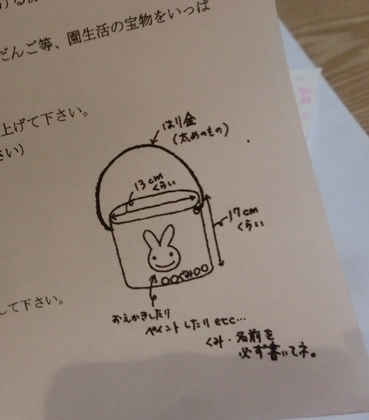 だんご等、園生活の宝物をいっぱ
上げて下さい。
さい）
はり金
（太めのもの）
13cm
くらい
17cm
くらい
○○ぐみ○○
して下さい。
おえかきしたり
ペイントしたりetc…
くみ・名前を
必ず書いてネ。